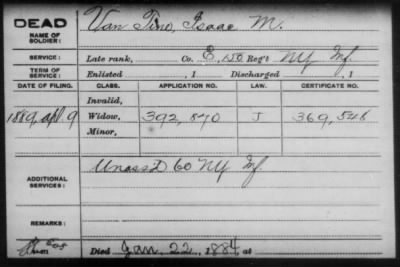 DEAD Van Tino, Isaac M.
NAME OF SOLDIER:
SERVICE: Late rank, Co. E, 150 Reg't NY Inf.
TERM OF SERVICE: Enlisted , 1 Discharged , 1
DATE OF FILING. CLASS. APPLICATION NO. LAW. CERTIFICATE NO.
Invalid,
1889, Apl. 9 Widow, 392,870 J 369,548
Minor,
ADDITIONAL SERVICES: Unass'd 60 NY Inf.
REMARKS:
Died Jan. 22, 1884 at